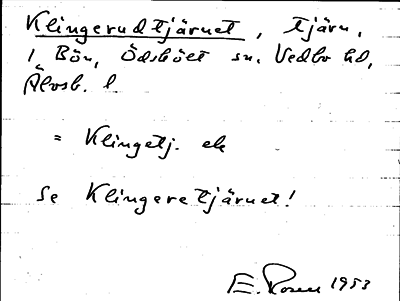 Klingerudtjärnet, tjärn,
1 Bön, Ödskölt sn. Vedbo hd,
Älvsb. l.
= Klingetj. ek
Se Klingeretjärnet!
E. Rosen 1953